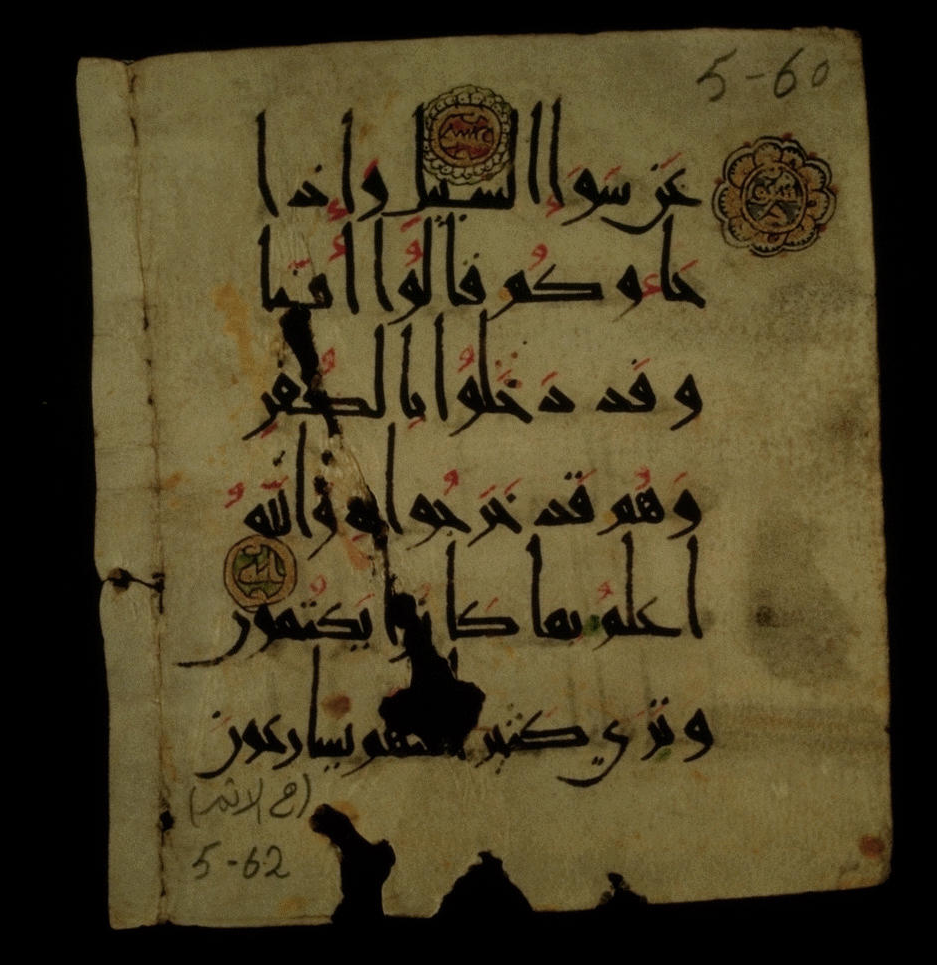 5-60
عَن سَوَاءِ السبيل وإذا
جَاءُوكُم قَالُوا أمنا
و قَد دَخَلُوا بِالكُفرِ
وَهُم قَد خَرَجُوا بِهِ وَاللَّهُ
اعلمُ بما كَانُوا يَكتُمون
وتَرَى كَثيرا منهم يسارعونَ
(في الاثم)
5-62